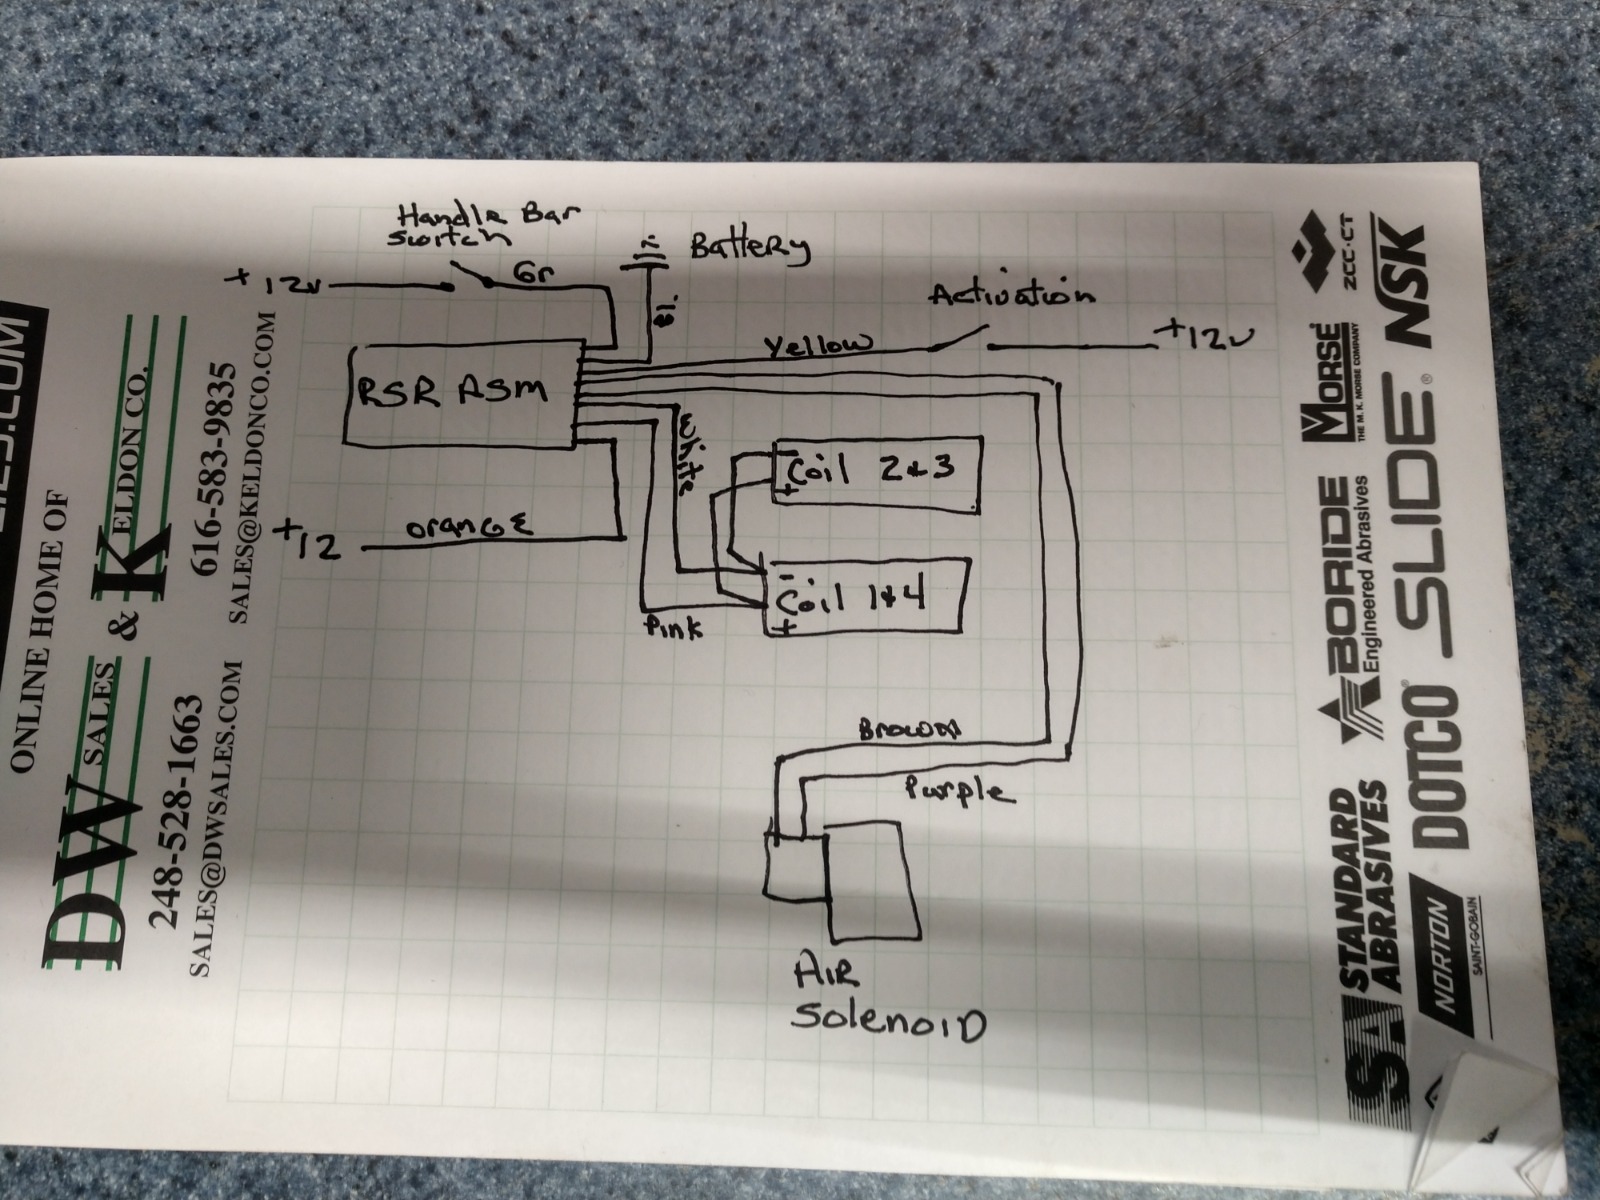 Handle Bar
Switch
+12v
Gr
Battery
Bl.
Activation
Yellow
+12v
RSR ASM
White
Coil 2&3
+
+12
orange
-
Coil 1&4
+
Pink
Brown
Purple
AIR
SolenoiD
ONLINE HOME OF
DW SALES & KELDON CO.
248-528-1663
616-583-9835
SALES@DWSALES.COM
SALES@KELDONCO.COM
ZCC·CT
NSK
MORSE
THE M. K. MORSE COMPANY
SLIDE®
BORIDE
Engineered Abrasives
DOTCO®
STANDARD
ABRASIVES
SA
NORTON
SAINT-GOBAIN